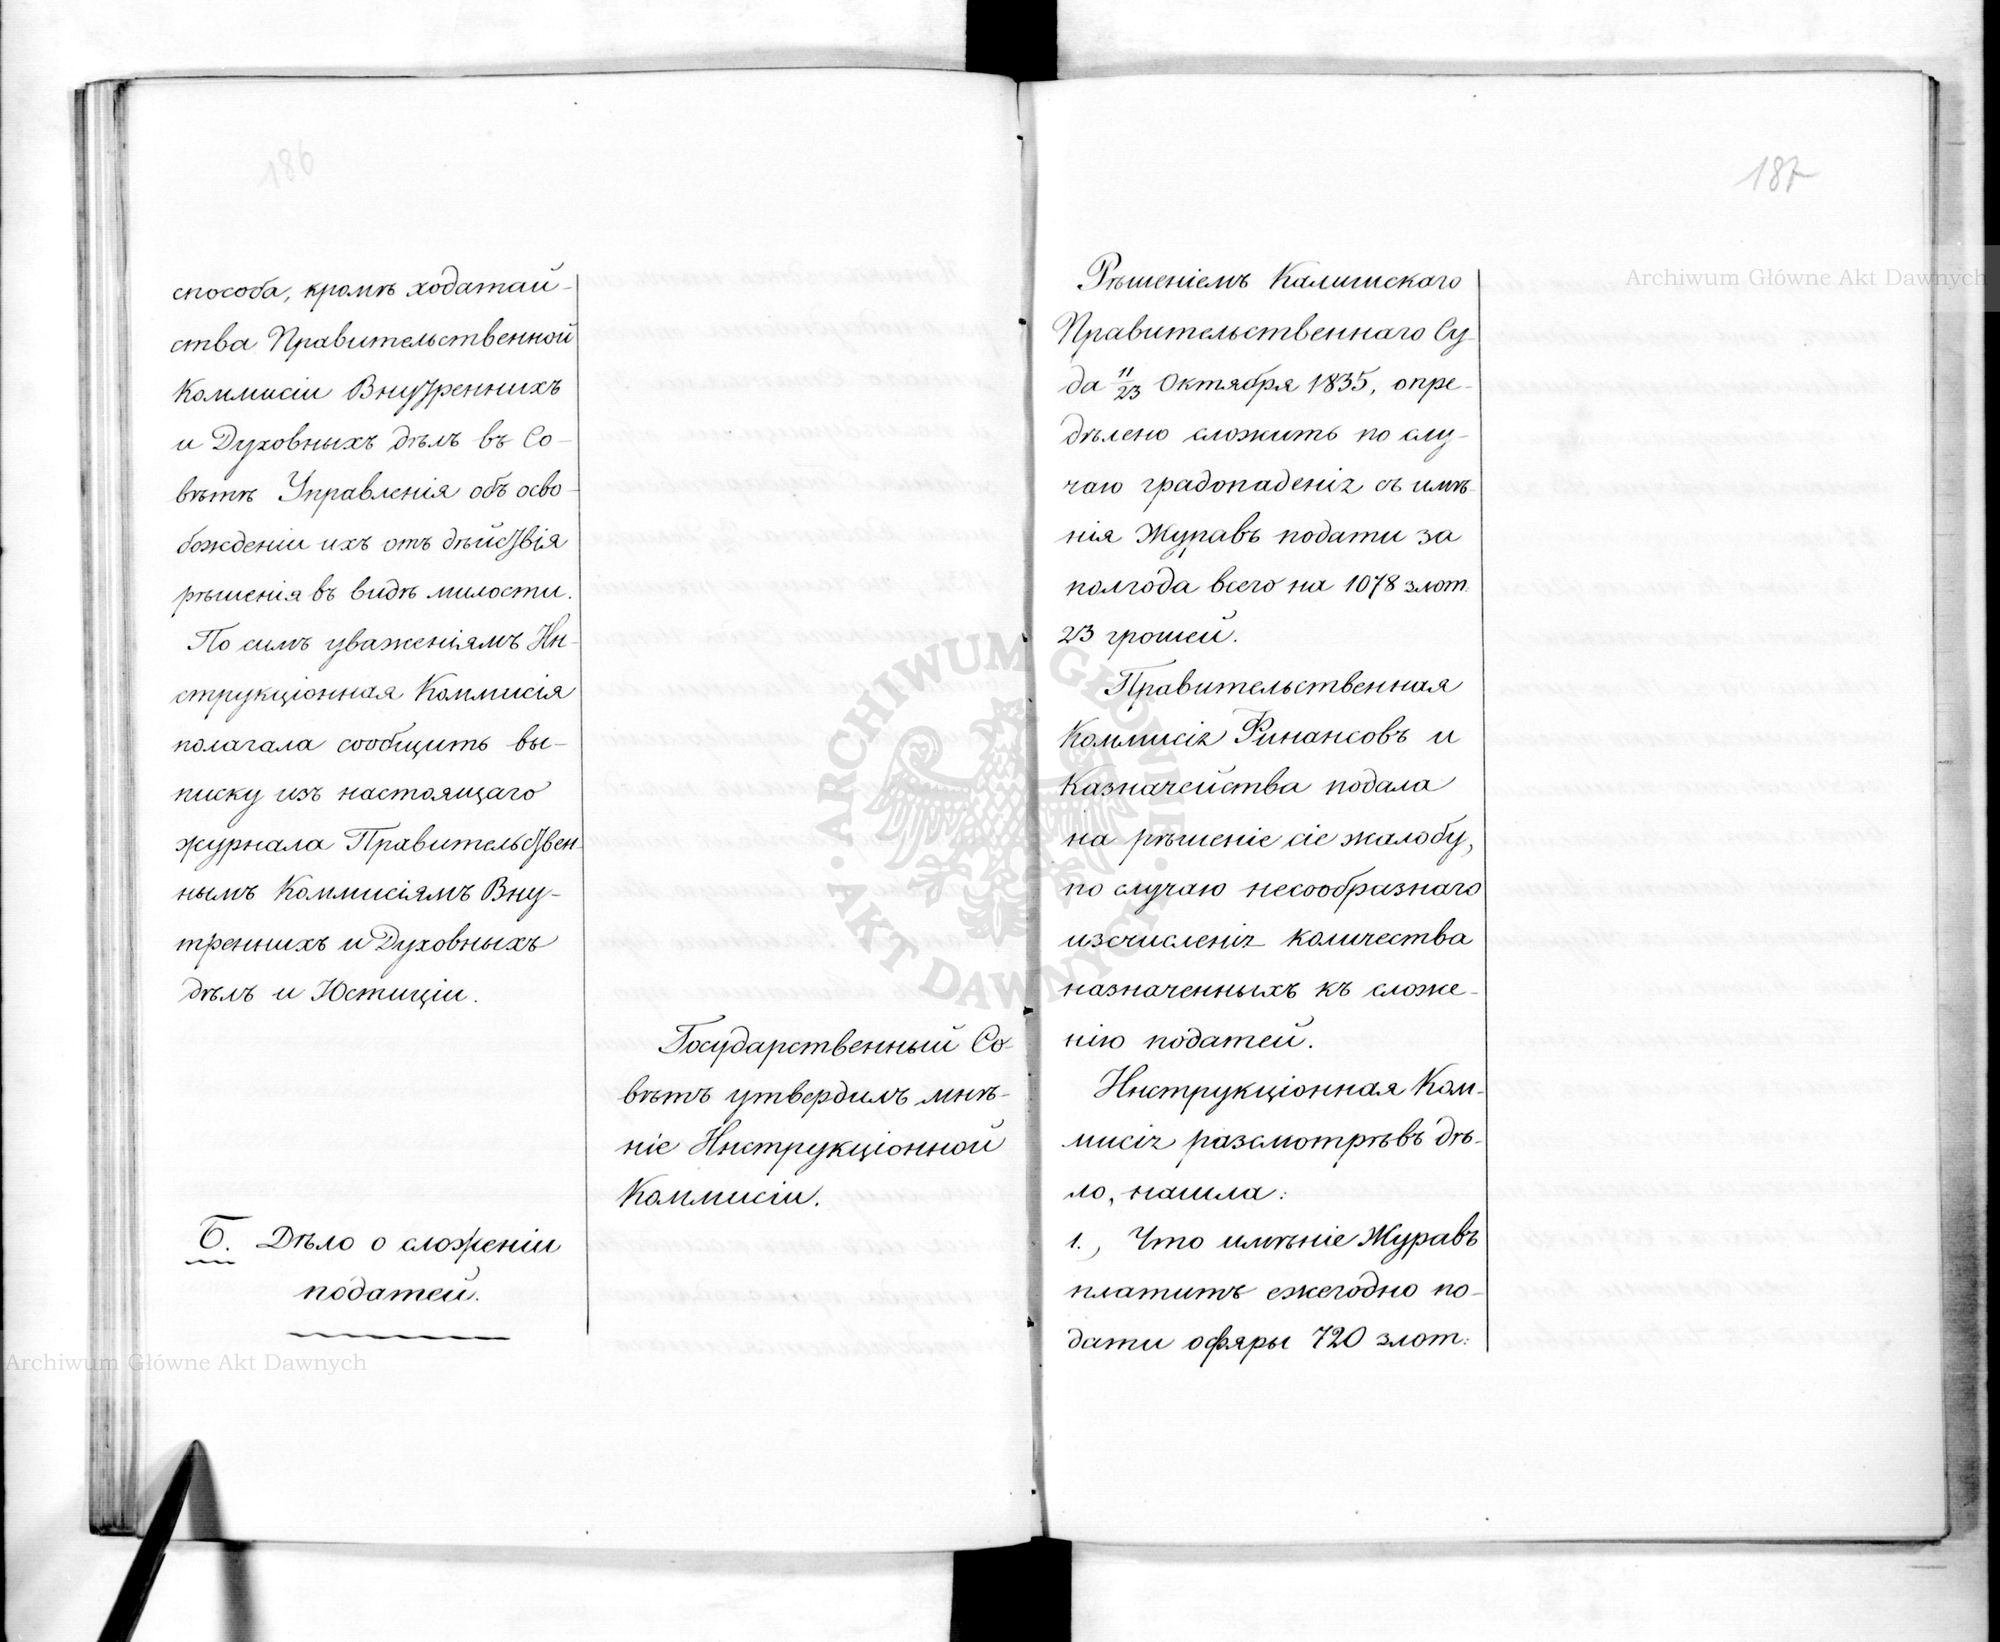 186
способа, кромѣ ходатай-
ства Правительственной
Коммисіи Внутреннихъ
и Духовныхъ дѣлъ въ Со-
вѣтѣ Управленія объ осво-
божденіи ихъ отъ дѣйствія
рѣшенія въ видѣ милости.
По симъ уваженіямъ Ин-
струкціонная Коммисія
полагала сообщить вы-
писку изъ настоящаго
журнала Правительствен-
нымъ Коммисіямъ Вну-
треннихъ и Духовныхъ
дѣлъ и Юстиціи.
Государственный Со-
вѣтъ утвердилъ мнѣ-
ніе Инструкціонной
Коммисіи.
Б. Дѣло о сложеніи
податей.
187
Рѣшеніемъ Калишскаго
Правительственнаго Су-
да 11/23 Октября 1835, опре-
дѣлено сложить по слу-
чаю градопаденія съ имѣ-
нія Журавъ подати за
полгода всего на 1078 злот.
23 грошей.
Правительственная
Коммисія Финансовъ и
Казначейства подала
на рѣшеніе сіе жалобу,
по случаю несообразнаго
изсчисленія количества
назначенныхъ къ сложе-
нію податей.
Инструкціонная Ком-
мисія разсмотрѣвъ дѣ-
ло, нашла:
1., Что имѣніе Журавъ
платитъ ежегодно по-
дати офяры 720 злот:
Archiwum Główne Akt Dawnych
Archiwum Główne Akt Dawnych
ARCHIWUM GŁÓWNE
AKT DAWNYCH